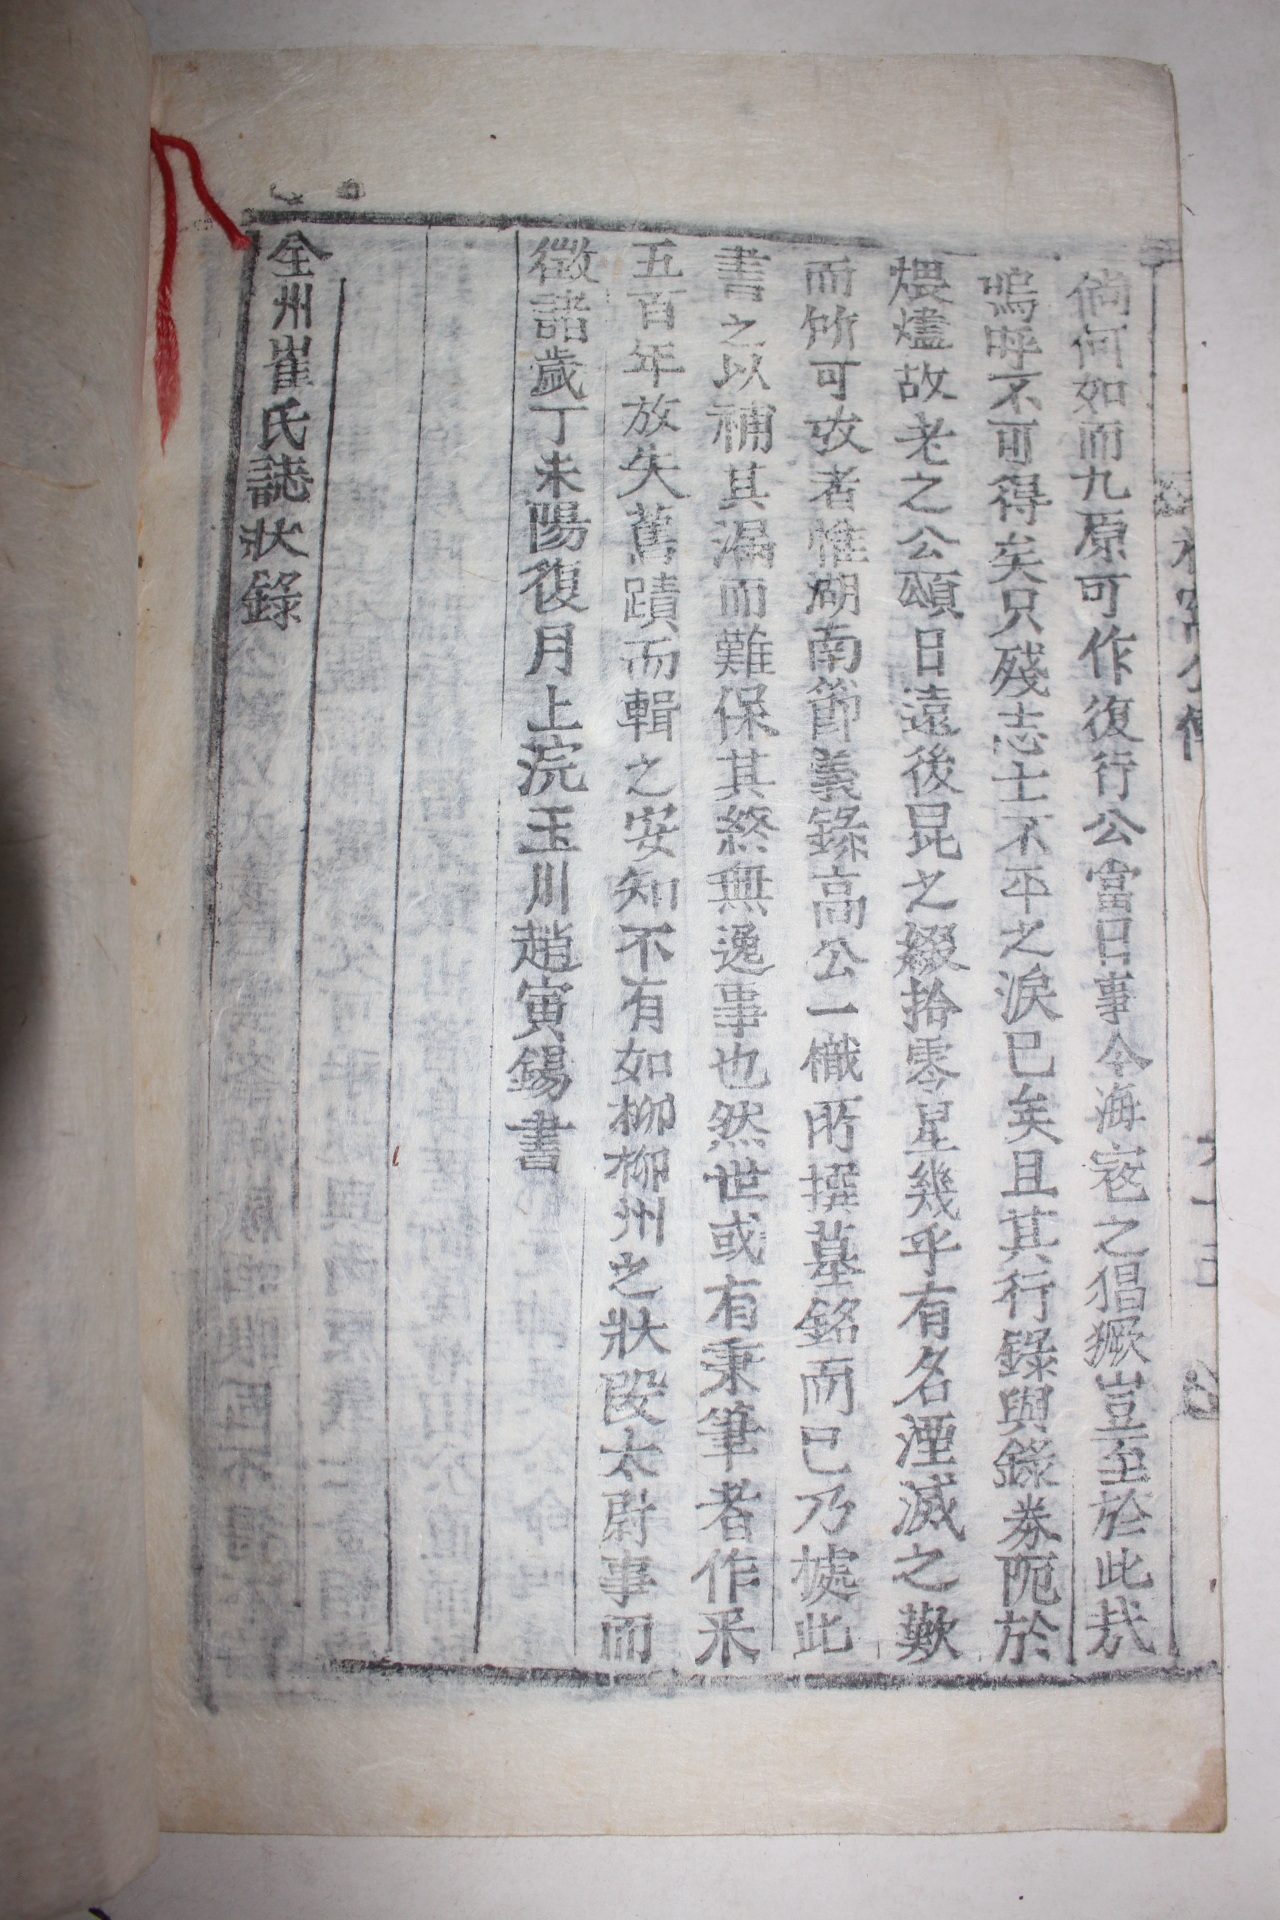 倘何如而九原可作復行公當日事今海寇之猖獗豈至於此哉
嗚呼不可得矣只殘志士不平之淚已矣且其行錄與錄券阨於
煨燼故老之公頌日遠後昆之綴拾零星幾乎有名湮滅之歎
而所可攷者惟湖南節義錄高公一檝所撰墓銘而已乃據此
書之以補其漏而難保其終無逸事也然世或有秉筆者作采
五百年放失舊蹟而輯之安知不有如柳柳州之狀段太尉事而
徵諸歲丁未陽復月上浣玉川趙寅錫書
全州崔氏誌狀錄